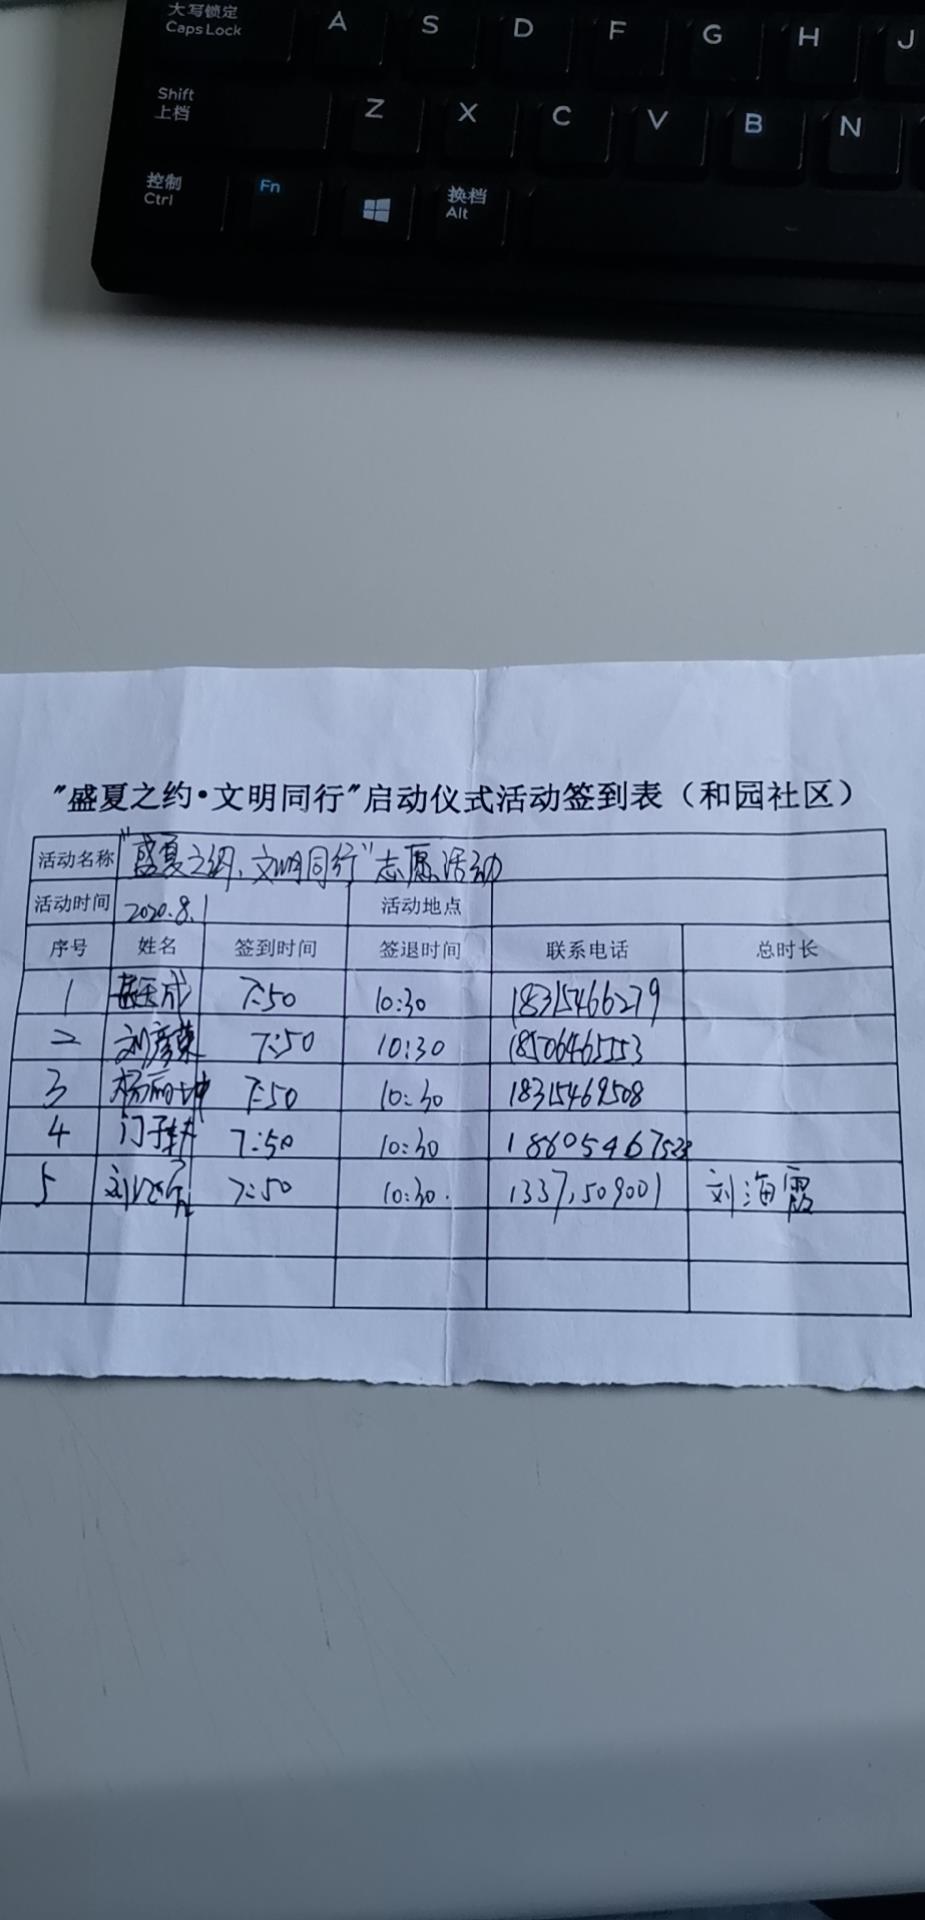 大写锁定
Caps Lock A S D F G H J
Shift
上档 Z X C V B N
控制
Ctrl Fn 换档
Alt
"盛夏之约•文明同行"启动仪式活动签到表（和园社区）
活动名称 "盛夏之约、文明同行"志愿活动
活动时间 2020.8.1 活动地点
序号 姓名 签到时间 签退时间 联系电话 总时长
1 7:50 10:30 18315466279
2 刘彦荣 7:50 10:30 18506465553
3 杨丽坤 7:50 10:30 18315469508
4 门子轩 7:50 10:30
5 7:50 10:30. 刘海霞